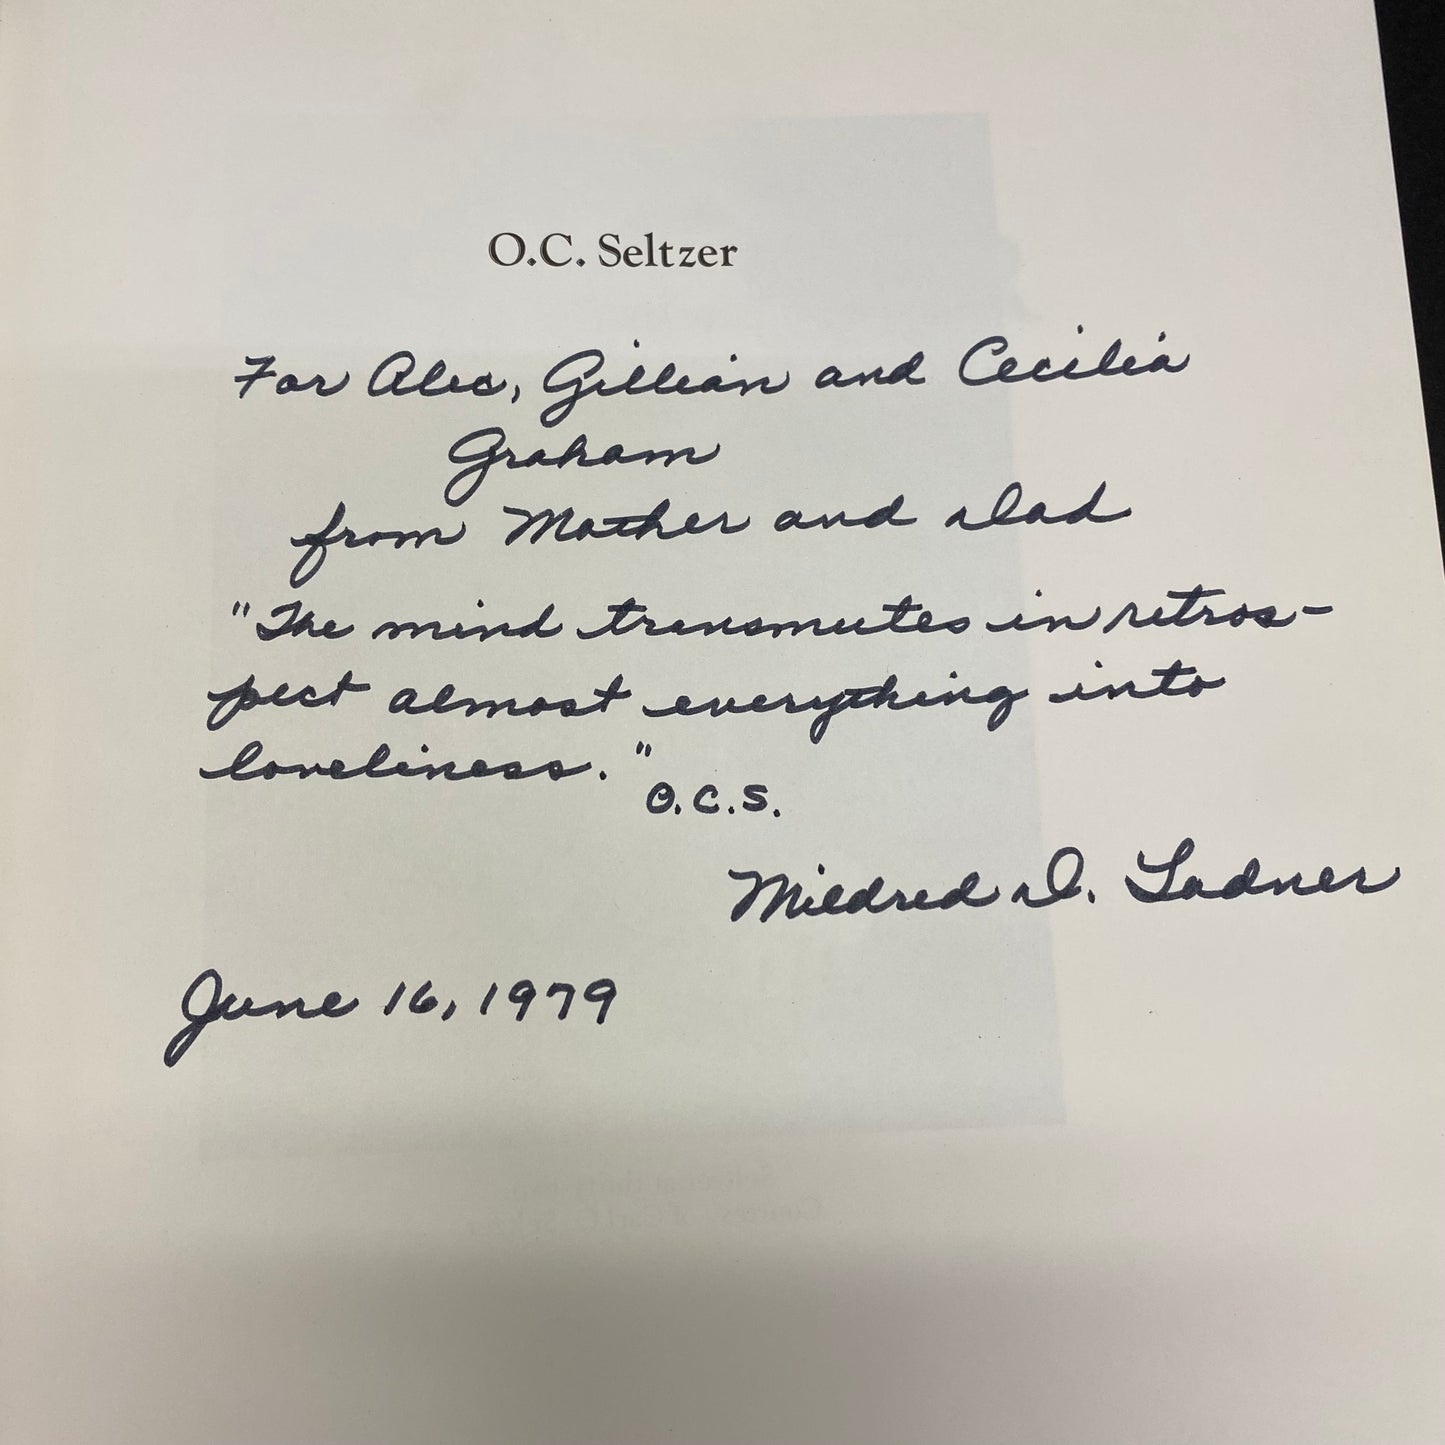 O.C. Seltzer
For Alec, Gillian and Cecilia
Graham
from Mother and Dad
"The mind transmutes in retros-
pect almost everything into
loveliness."
O.C.S.
Mildred D. Ladner
June 16, 1979